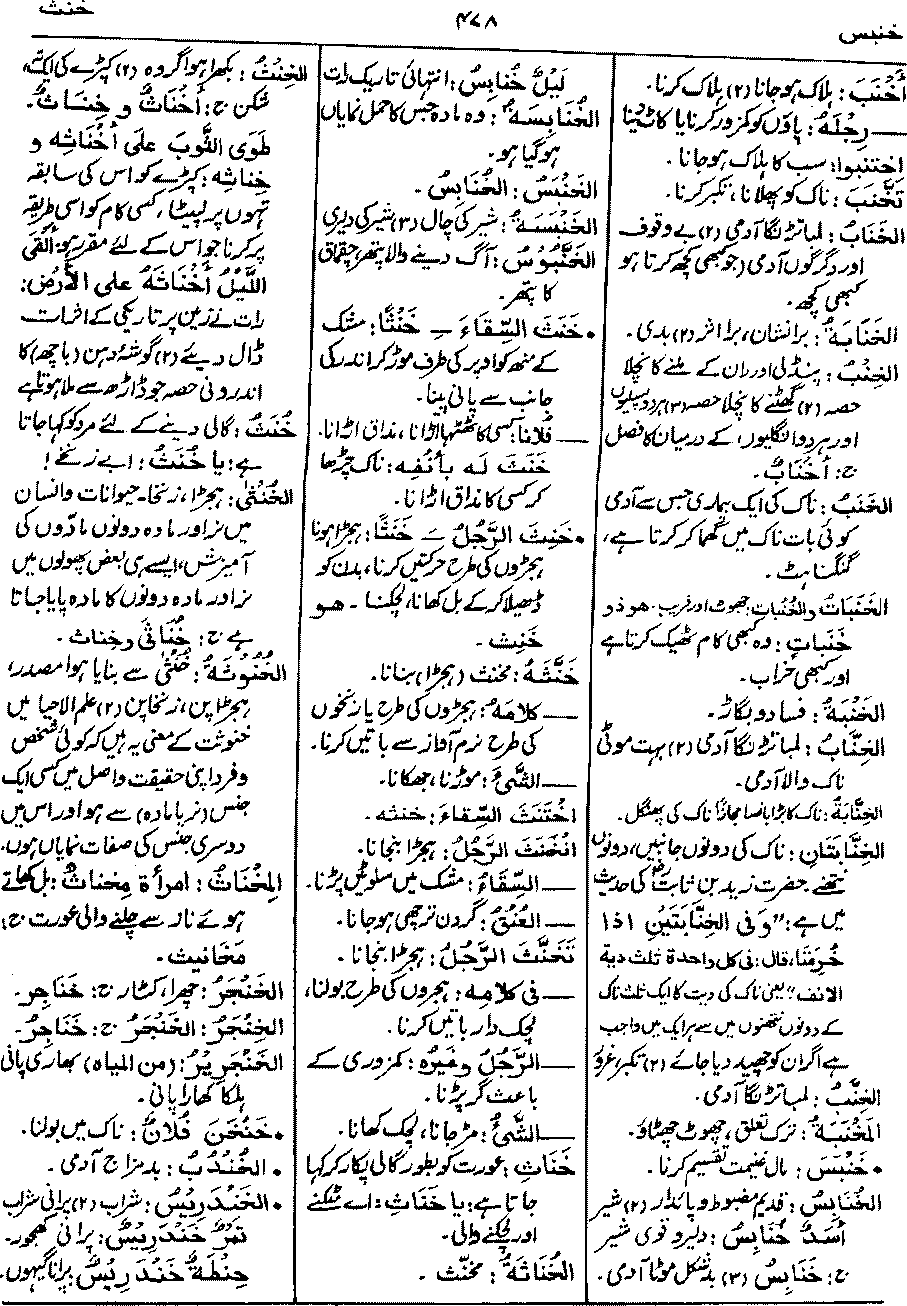 خنبس
۴۷۸
خنث
أَخْنَبَ: ہلاک ہوجانا (۲) ہلاک کرنا۔
— رِجْلَهُ: پاؤں کو کمزور کرنا یا کاٹ دینا
اختنبوا: سب کا ہلاک ہوجانا۔
تَخَنَّبَ: ناک کو پھلانا، تکبر کرنا۔
الخِنَابُ: لمبا تڑنگا آدمی (۲) بے وقوف
اور دگرگوں آدمی (جو کبھی کچھ کرتا ہو
کبھی کچھ۔
الخَنَابَةُ: برا نشان، برا اثر (۲) بدی۔
الخِنْبُ: پنڈلی اور ران کے ملنے کا نچلا
حصہ (۲) گھٹنے کا نچلا حصہ (۳) ہر دو پسلیوں
اور ہر دو انگلیوں کے درمیان کا فصل
ج: أَخْنَابٌ۔
الخَنَبُ: ناک کی ایک بیماری جس سے آدمی
کوئی بات ناک میں گھما کر کرتا ہے،
گنگناہٹ۔
الخَنَبَاتُ والخُنُبَات: جھوٹ اور فریب۔ هو ذو
خَنَبَاتٍ: وہ کبھی کام ٹھیک کرتا ہے
اور کبھی خراب۔
الخَنْبَةُ: فساد و بگاڑ۔
الخِنَّابُ: لمبا تڑنگا آدمی (۲) بہت موٹی
ناک والا آدمی۔
الخِنَّابَةُ: ناک کا بڑا بانسا مجازاً ناک کی پھنگل۔
الخِنَّابَتَانِ: ناک کی دونوں جانبیں، دونوں
نتھنے۔ حضرت زید بن ثابتؓ کی حدیث
میں ہے: "وَفی الخِنَّابَتَيْنِ اذا
خُرِمَتَا، قال: فی کل واحدة ثلث دية
الانف" یعنی ناک کی دیت کا ایک ثلث ناک
کے دونوں نتھنوں میں سے ہر ایک میں واجب
ہے اگر ان کو چھید دیا جائے (۲) تکبر، غرور
الخِنَّبُ: لمبا تڑنگا آدمی۔
المَخْنَبَةُ: ترک تعلق، چھوٹ چھٹاؤ۔
• خَنْبَسَ: مال غنیمت تقسیم کرنا۔
الخُنَابِسُ: قدیم مضبوط و پائدار (۲) شیر
أَسَدٌ خُنَابِسُ: دلیر و قوی شیر
ج: خَنَابِسُ (۳) بدشکل موٹا آدمی۔
لَيْلٌ خُنَابِسٌ: انتہائی تاریک رات
الخُنَابِسَةُ: وہ مادہ جس کا حمل نمایاں
ہوگیا ہو۔
الخَنْبَسُ: الخُنَابِسُ۔
الخَنْبَسَةُ: شیر کی چال (۳) شیر کی دلیری
الخَنَّبُوْسُ: آگ دینے والا پتھر، چقماق
کا پتھر۔
• خَنَثَ السِّقَاءَ ــِـ خَنْثًا: مشک
کے منھ کو اوپر کی طرف موڑ کر اندر کی
جانب سے پانی پینا۔
— فُلَانًا: کسی کا ٹھٹھا اڑانا، مذاق اڑانا۔
خَنَثَ لَه بِأَنْفِه: ناک چڑھا
کر کسی کا مذاق اڑانا۔
• خَنِثَ الرَّجُلُ ــَـ خَنَثًا: ہجڑا ہونا
ہجڑوں کی طرح حرکتیں کرنا، بدن کو
ڈھیلا کر کے بل کھانا، لچکنا۔ هو
خَنِث۔
خَنَّثَهُ: مخنث (ہجڑا) بنانا۔
— کَلَامَهُ: ہجڑوں کی طرح یا زنخوں
کی طرح نرم آواز سے باتیں کرنا۔
— الشَّیْءَ: موڑنا، جھکانا۔
اخْتَنَثَ السِّقَاءَ: خنثه۔
انْخَنَثَ الرَّجُلُ: ہجڑا بنجانا۔
— السِّقَاءُ: مشک میں سلوٹیں پڑنا۔
— العُنُقُ: گردن ترچھی ہوجانا۔
تَخَنَّثَ الرَّجُلُ: ہجڑا بنجانا۔
— فی کلامه: ہجڑوں کی طرح بولنا،
لچک دار باتیں کرنا۔
— الرَّجُلُ وغيرُه: کمزوری کے
باعث گر پڑنا۔
— الشَّیْءُ: مڑ جانا، لچک کھانا۔
خَنَاثِ: عورت کو بطور گالی پکار کر کہا
جاتا ہے: یا خَنَاثِ: اے مٹکنے
اور لچکنے والی۔
الخُنَاثَةُ: مخنّث۔
الخِنْثُ: بکھرا ہوا گروہ (۲) کپڑے کی ایک تہ،
شکن ج: أَخْنَاثٌ و خِنَاثٌ۔
طَوَی الثَّوبَ علی أَخْنَاثِه و
خِنَاثِه: کپڑے کو اس کی سابقہ
تہوں پر لپیٹا، کسی کام کو اسی طریقہ
پر کرنا جو اس کے لئے مقرر ہو، أَلْقَی
اللَّيْلُ أَخْنَاثَهُ علی الأَرْضِ:
رات نے زمین پر تاریکی کے اثرات
ڈال دیئے (۲) گوشۂ دہن (باچھ) کا
اندرونی حصہ جو ڈاڑھ سے ملا ہوتا ہے
خُنَثُ: گالی دینے کے لئے مرد کو کہا جاتا
ہے: یا خُنَثُ: ابے زنخے!
الخُنْثٰی: ہجڑا، زنخا۔ حیوانات و انسان
میں نر اور مادہ دونوں مادّوں کی
آمیزش، ایسے ہی بعض پھولوں میں
نر اور مادہ دونوں کا مادہ پایا جاتا
ہے ج: خُنَاثٰی وخِناث۔
الخُنُوْثَةُ: خُنْثٰی سے بنایا ہوا مصدر،
ہجڑا پن، زنخا پن (۲) علم الاحیا میں
خنوثت کے معنی یہ ہیں کہ کوئی شخص
و فرد اپنی حقیقت و اصل میں کسی ایک
جنس (نر یا مادہ) سے ہو اور اس میں
دوسری جنس کی صفات نمایاں ہوں۔
المِخْنَاثُ: امرأة مِخناثٌ: بل کھاتے
ہوئے ناز سے چلنے والی عورت ج:
مَخَانیث۔
الخَنْجَرُ: چھرا، کٹار ج: خَنَاجِر۔
الخِنْجَرُ: الخَنْجَرُ ج: خَنَاجِرُ۔
الخَنْجَرِيْرُ: (من المياه) بھاری پانی
ہلکا کھارا پانی۔
• خَنْخَنَ فُلَانٌ: ناک میں بولنا۔
• الخُنْدُبُ: بدمزاج آدمی۔
• الخَنْدَرِيْسُ: شراب (۲) پرانی شراب
تَمْرٌ خَنْدَرِيْسٌ: پرانی کھجور۔
حِنْطَةٌ خَنْدَرِيْسٌ: پرانا گیہوں۔